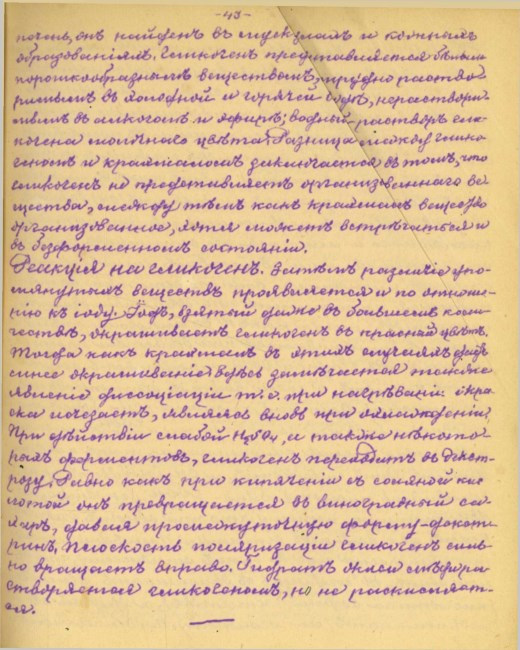 -43-
печень, онъ найденъ въ мускулахъ и кожныхъ
образованіяхъ. Гликогенъ представляется бѣлымъ
порошкообразнымъ веществомъ, трудно раство-
римымъ въ холодной и горячей водѣ, нераствори-
мымъ въ алкоголѣ и эфирѣ; водный растворъ гли-
когена молочнаго цвѣта. Разница между глико-
геномъ и крахмаломъ заключается въ томъ, что
гликогенъ не представляетъ организованнаго ве-
щества, между тѣмъ какъ крахмалъ вещество
организованное, хотя можетъ встрѣчаться и
въ безформенномъ состояніи.
Реакція на гликогенъ. Затѣмъ различіе упо-
мянутыхъ веществъ проявляется и по отноше-
нію къ іоду. Іодъ, взятый даже въ большемъ коли-
чествѣ, окрашиваетъ гликогенъ въ красный цвѣтъ.
Тогда какъ крахмалъ въ этихъ случаяхъ даетъ
синее окрашиваніе. Здѣсь замѣчается также
явленіе диссоціаціи т. е. при нагрѣваніи окрас-
ка исчезаетъ, являясь вновь при охлажденіи.
При дѣйствіи слабой H₂SO₄, а также нѣкото-
рыхъ ферментовъ, гликогенъ переходитъ въ декст-
розу. Равно какъ при кипяченіи съ соляной кис-
лотой онъ превращается въ виноградный са-
харъ, давая промежуточную форму-декст-
ринъ. Плоскость поляризаціи гликогенъ силь-
но вращаетъ вправо. Гидратъ окиси мѣди ра-
створяется гликогеномъ, но не раскисляет-
ся.